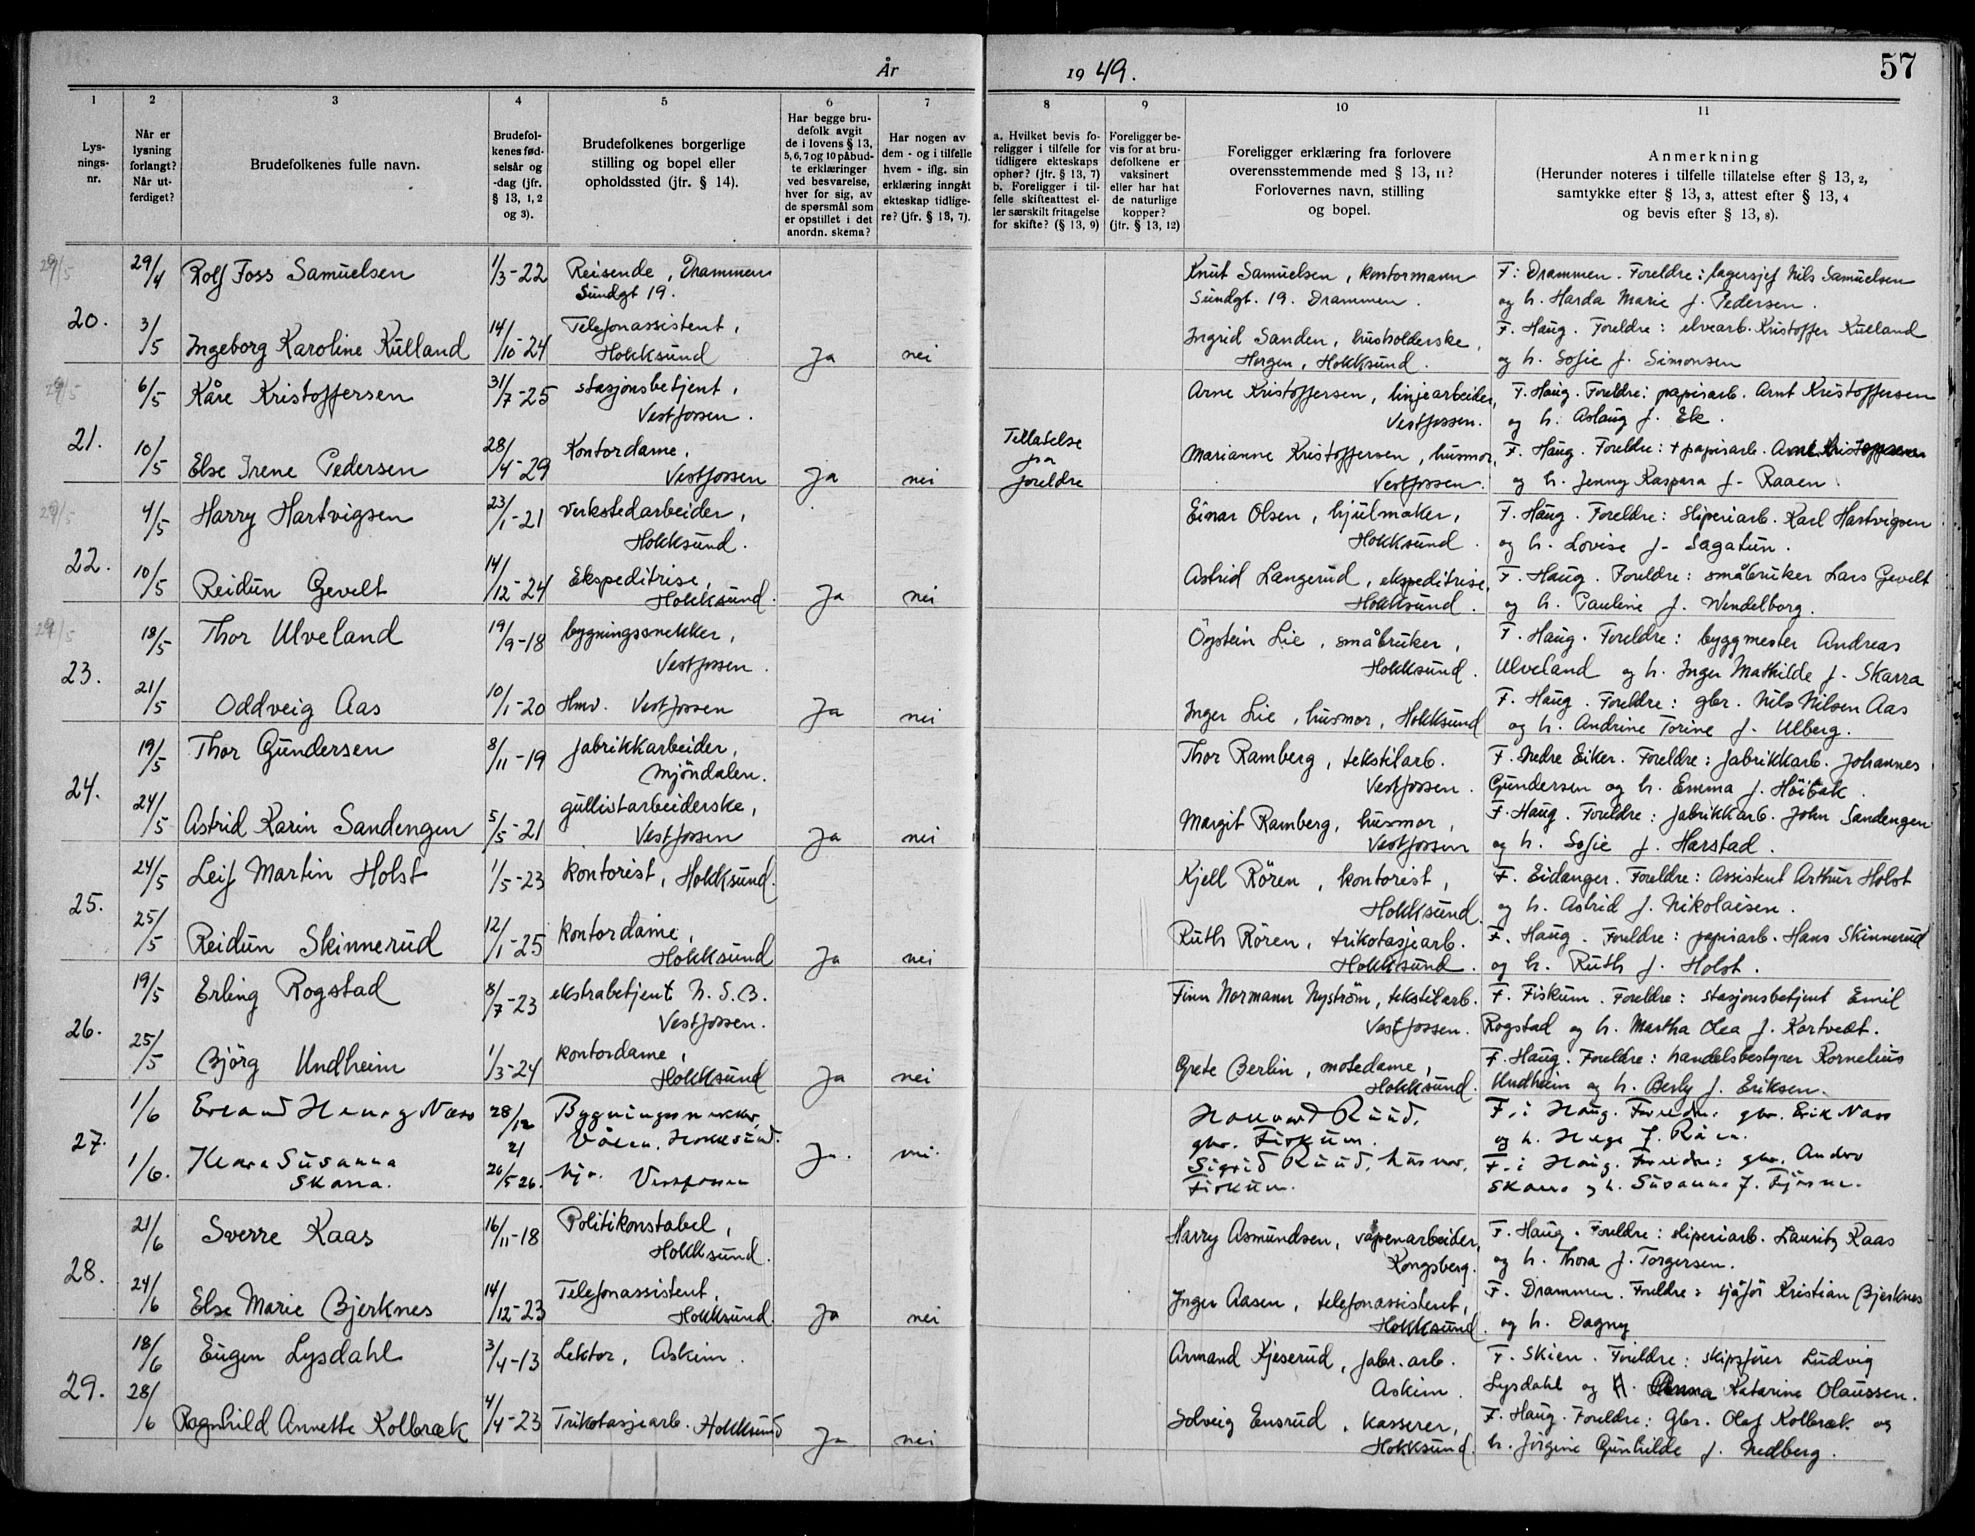 År 1949.
57
1 2 3 4 5 6 7 8 9 10 11
Lysningsnr.
Når er lysning forlangt? Når utferdiget?
Brudefolkenes fulle navn.
Brudefolkenes fødselsår og -dag (jfr. § 13, 1, 2 og 3).
Brudefolkenes borgerlige stilling og bopel eller opholdssted (jfr. § 14).
Har begge brudefolk avgit de i lovens § 13, 5, 6, 7 og 10 påbudte erklæringer ved besvarelse, hver for sig, av de spørsmål som er opstillet i det anordn. skema?
Har nogen av dem - og i tilfelle hvem - iflg. sin erklæring inngått ekteskap tidligere? (jfr. § 13, 7).
a. Hvilket bevis foreligger i tilfelle for tidligere ekteskaps ophør? (jfr. § 13, 7) b. Foreligger i tilfelle skifteattest eller særskilt fritagelse for skifte? (§ 13, 9)
Foreligger bevis for at brudefolkene er vaksinert eller har hat de naturlige kopper? (jfr. § 13, 12)
Foreligger erklæring fra forlovere overensstemmende med § 13, 11? Forlovernes navn, stilling og bopel.
Anmerkning (Herunder noteres i tilfelle tillatelse efter § 13, 2, samtykke efter § 13, 3, attest efter § 13, 4 og bevis efter § 13, 8).
29/5
20.
29/4 Rolf Foss Samuelsen 1/3-22 Reisende, Drammen Knut Samuelsen, kontormann F: Drammen. Foreldre: lagersjef Nils Samuelsen
Sundgt 19. Sundgt. 19. Drammen. og h. Harda Marie f. Pedersen.
3/5 Ingeborg Karoline Kulland 14/10-24 Telefonassistent, Ingrid Sanden, husholderske, F. Haug. Foreldre: elvearb. Kristoffer Kulland
Hokksund Ja nei Horgen, Hokksund. og h. Sofie f. Simonsen
29/5
21.
6/5 Kåre Kristoffersen 31/7-25 stasjonsbetjent, Arne Kristoffersen, linjearbeider, F. Haug. Foreldre: papirarb. Arnt Kristoffersen
Vestfossen. Vestfossen. og h. Aslaug f. Ek.
10/5 Else Irene Pedersen 28/4-29 Kontordame, Tillatelse fra foreldre Marianne Kristoffersen, husmor, F. Haug. Foreldre: + papirarb.
Vestfossen Ja nei Vestfossen. og h. Jenny Kaspara f. Raaen
29/5
22.
4/5 Harry Hartvigsen 23/1-21 Verkstedarbeider, Einar Olsen, hjulmaker, F. Haug. Foreldre: sliperiarb. Karl Hartvigsen
Hokksund. Hokksund. og h. Lovise f. Sagatun.
10/5 Reidun Gevelt 14/12-24 Ekspeditrise, Astrid Langerud, ekspeditrise, F. Haug. Foreldre: småbruker Lars Gevelt
Hokksund. Ja nei Hokksund. og h. Pauline f. Wendelborg.
29/5
23.
18/5 Thor Ulveland 19/9-18 bygningssnekker, Öystein Lie, småbruker, F. Haug. Foreldre: byggmester Andreas
Vestfossen. Hokksund. Ulveland og h. Inger Mathilde f. Skarra
21/5 Oddveig Aas 10/1-20 Hmv. Vestfossen Ja nei Inger Lie, husmor, Hokksund F. Haug. Foreldre: gbr. Nils Nilsen Aas
og h. Andrine Torine f. Ulberg.
24.
19/5 Thor Gundersen 8/11-19 fabrikkarbeider, Thor Ramberg, tekstilarb. F. Nedre Eiker. Foreldre: fabrikkarb. Johannes
Mjöndalen. Vestfossen. Gundersen og h. Emma f. Höibak.
24/5 Astrid Karin Sandengen 5/5-21 gullistarbeiderske, Margit Ramberg, husmor, F. Haug. Foreldre: fabrikkarb. John Sandengen
Vestfossen Ja nei Vestfossen og h. Sofie f. Harstad.
25.
24/5 Leif Martin Holst 1/5-23 kontorist, Hokksund. Kjell Rören, kontorist, F. Eidanger. Foreldre: Assistent Arthur Holst
Hokksund og h. Astrid f. Nikolaisen.
25/5 Reidun Skinnerud 12/1-25 kontordame, Ruth Rören, trikotasjearb. F. Haug. Foreldre: papirarb. Hans Skinnerud
Hokksund Ja nei Hokksund. og h. Ruth f. Holst.
26.
19/5 Erling Rogstad 8/7-23 ekstrabetjent N.S.B. Finn Normann Nyström, tekstilarb. F. Fiskum. Foreldre: stasjonsbetjent Emil
Vestfossen. Vestfossen. Rogstad og h. Martha Olea f. Kortvedt.
25/5 Björg Undheim 1/3-24 kontordame, Grete Berlin, motedame, F. Haug. Foreldre: handelsbestyrer Kornelius
Hokksund Ja nei Hokksund. Undheim og h. Berly f. Eriksen.
27.
1/6 Erland Næss 28/12 21 Bygningssnekker, Ruud, F. i Haug. Foreldre: gbr. Erik Næss
Hokksund. gbr. Fiskum. og h. Hega f.
1/6. Klara Susanna Skarra. 26/5 26. hjv. Vestfossen Ja. nei. Sigrid Ruud, husmor, F. i Haug. Foreldre: gbr.
Fiskum. Skarra og h. Susanna f.
28.
21/6 Sverre Kaas 16/11-18 Politikonstabel, Harry Asmundsen, våpenarbeider, F. Haug. Foreldre: sliperiarb. Lauritz Kaas
Hokksund. Kongsberg. og h. Thora f. Torgersen.
24/6 Else Marie Bjerknes 14/12-23 Telefonassistent, Inger Aasen, telefonassistent, F. Drammen. Foreldre: sjåför Kristian Bjerknes
Hokksund. Ja nei Hokksund. og h. Dagny
29.
18/6 Eugen Lysdahl 3/4-13 Lektor, Askim. Armand Kjeserud, fabr.arb. F. Skien. Foreldre: skipsförer Ludvig
Askim. Lysdahl og H. Anna Katarine Olaussen.
28/6 Ragnhild Annette Kolbræk 4/4-23 Trikotasjearb. Hokksund Ja nei Solveig Ensrud, kasserer, F. Haug. Foreldre: Gbr. Olaf Kolbræk og
Hokksund. h. Jörgine Gunhilde f. Nedberg.